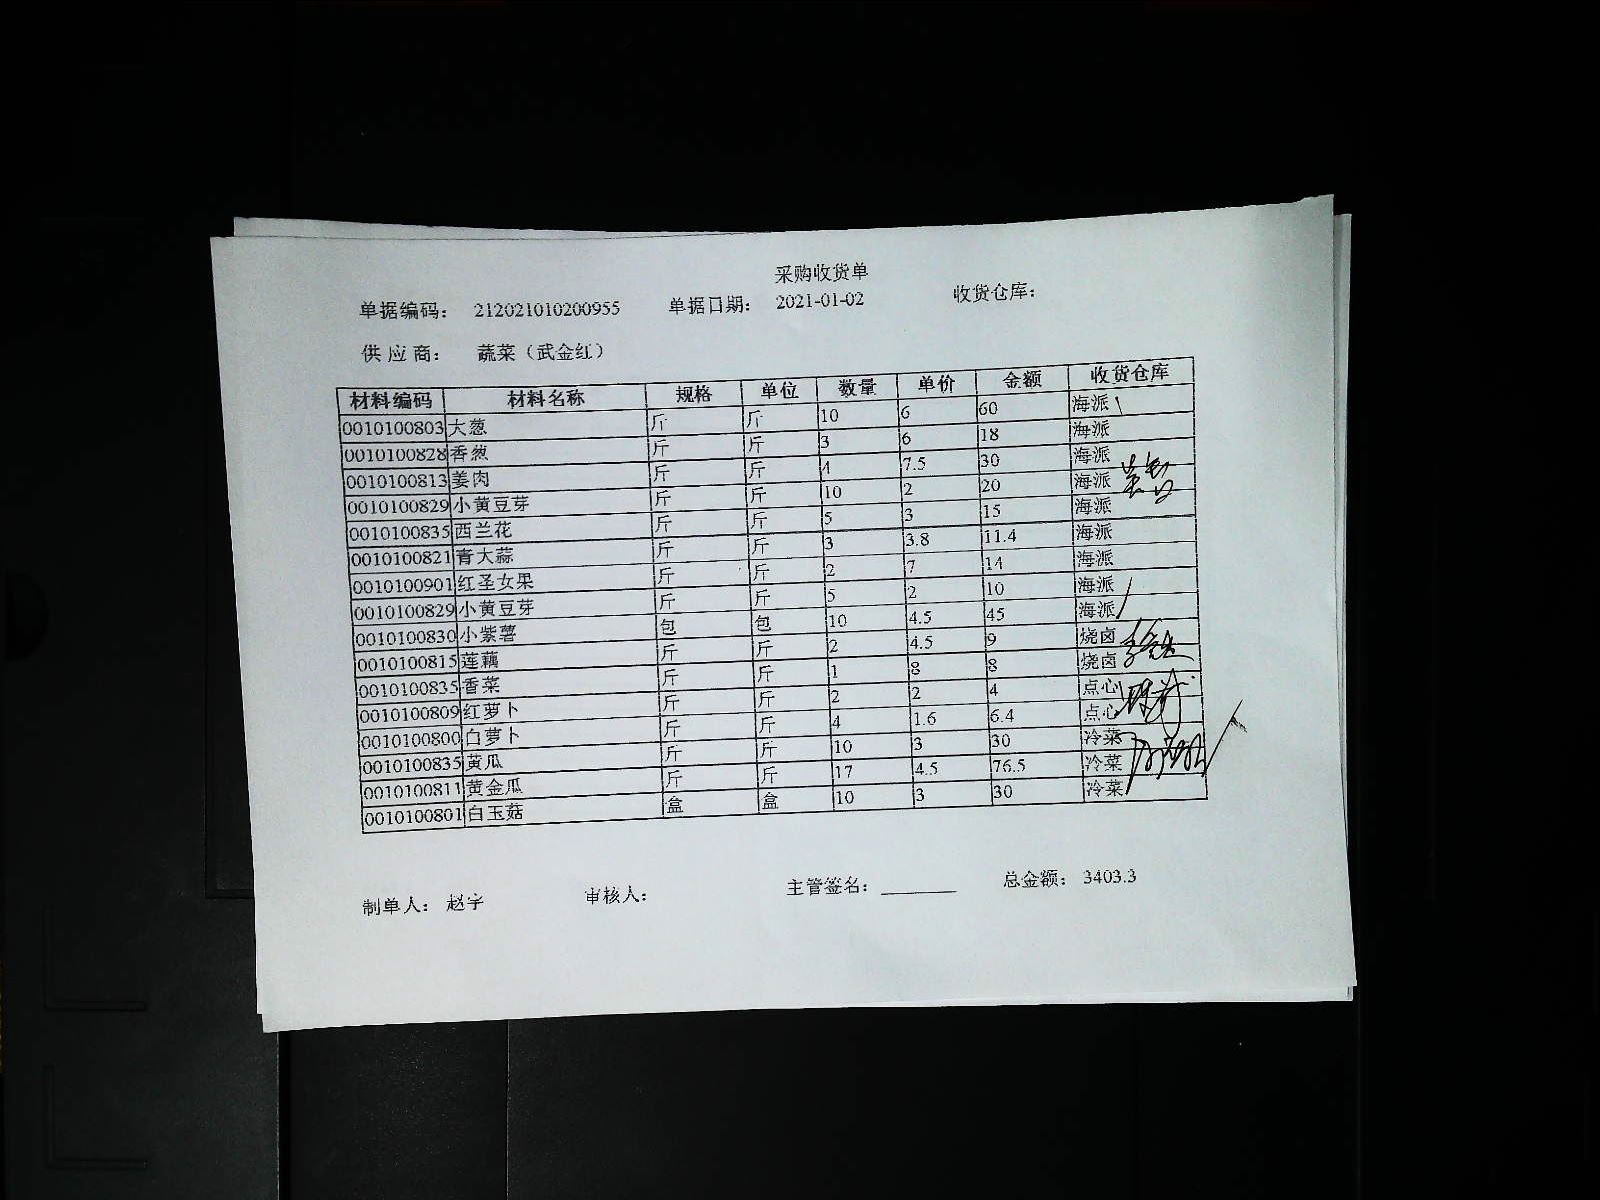 采购收货单
单据编码： 212021010200955 单据日期： 2021-01-02 收货仓库：
供 应 商： 蔬菜（武金红）
材料编码 材料名称 规格 单位 数量 单价 金额 收货仓库
0010100803 大葱 斤 斤 10 6 60 海派
0010100828 香葱 斤 斤 3 6 18 海派
0010100813 姜肉 斤 斤 4 7.5 30 海派
0010100829 小黄豆芽 斤 斤 10 2 20 海派
0010100835 西兰花 斤 斤 5 3 15 海派
0010100821 青大蒜 斤 斤 3 3.8 11.4 海派
0010100901 红圣女果 斤 斤 2 7 14 海派
0010100829 小黄豆芽 斤 斤 5 2 10 海派
0010100830 小紫薯 包 包 10 4.5 45 海派
0010100815 莲藕 斤 斤 2 4.5 9 烧卤
0010100835 香菜 斤 斤 1 8 8 烧卤
0010100809 红萝卜 斤 斤 2 2 4 点心
0010100800 白萝卜 斤 斤 4 1.6 6.4 点心
0010100835 黄瓜 斤 斤 10 3 30 冷菜
0010100811 黄金瓜 斤 斤 17 4.5 76.5 冷菜
0010100801 白玉菇 盒 盒 10 3 30 冷菜
制单人： 赵宇 审核人： 主管签名： 总金额： 3403.3